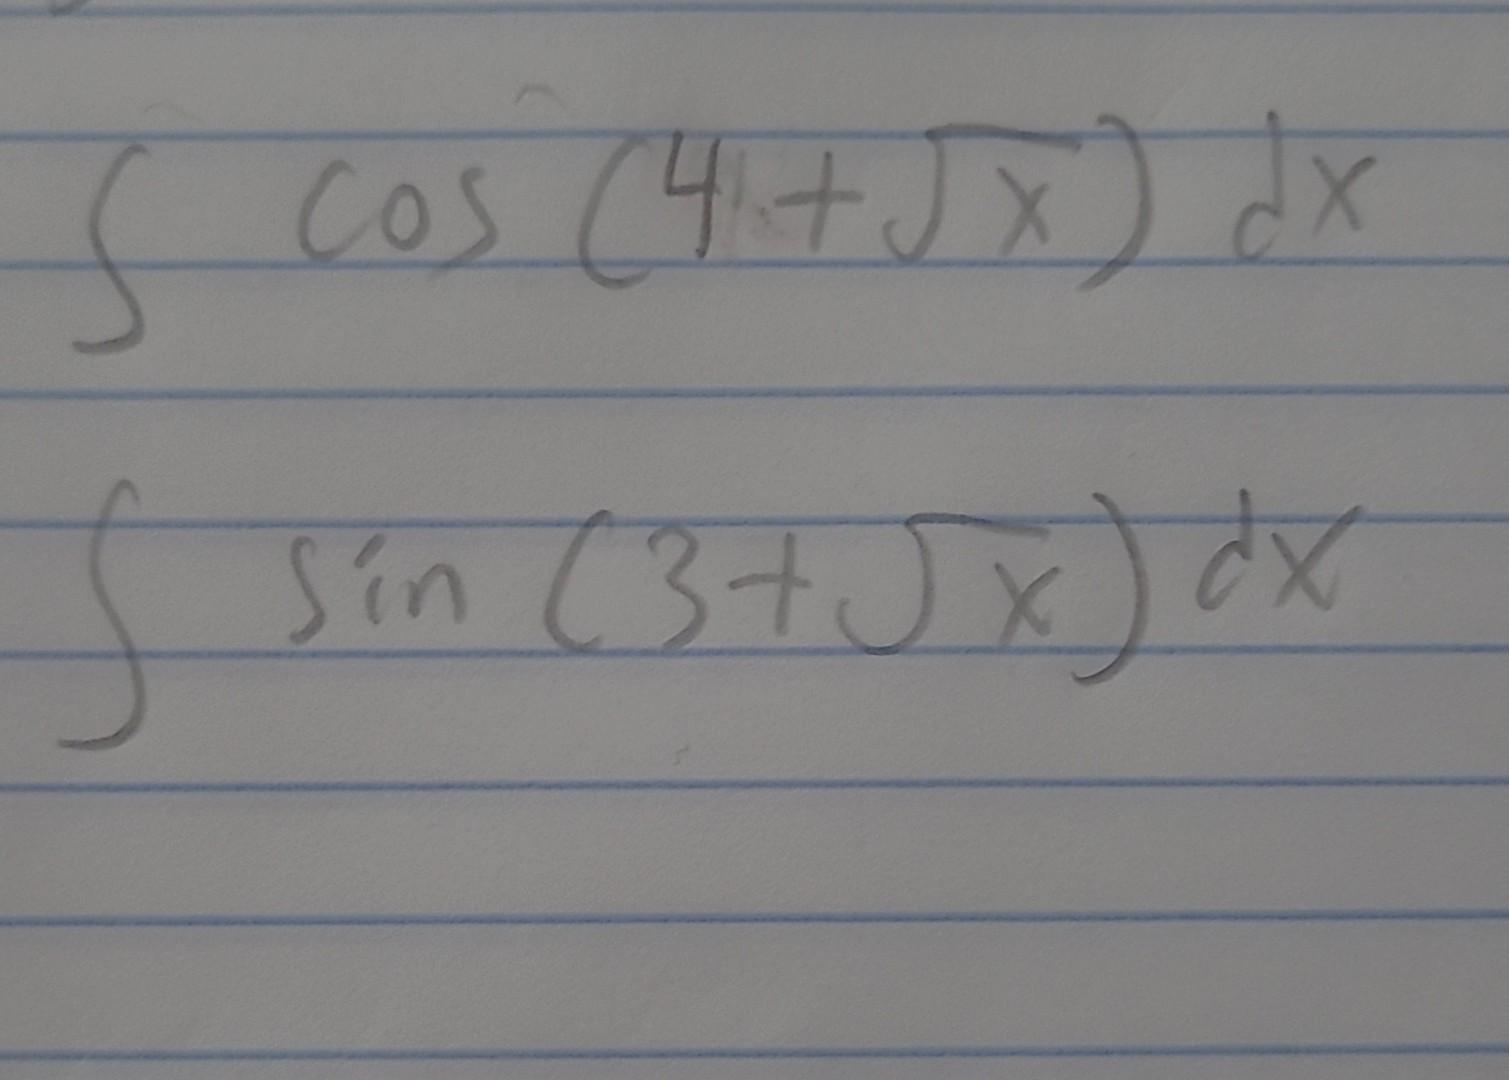 ∫ cos (4 + √x) dx
∫ sin (3 + √x) dx